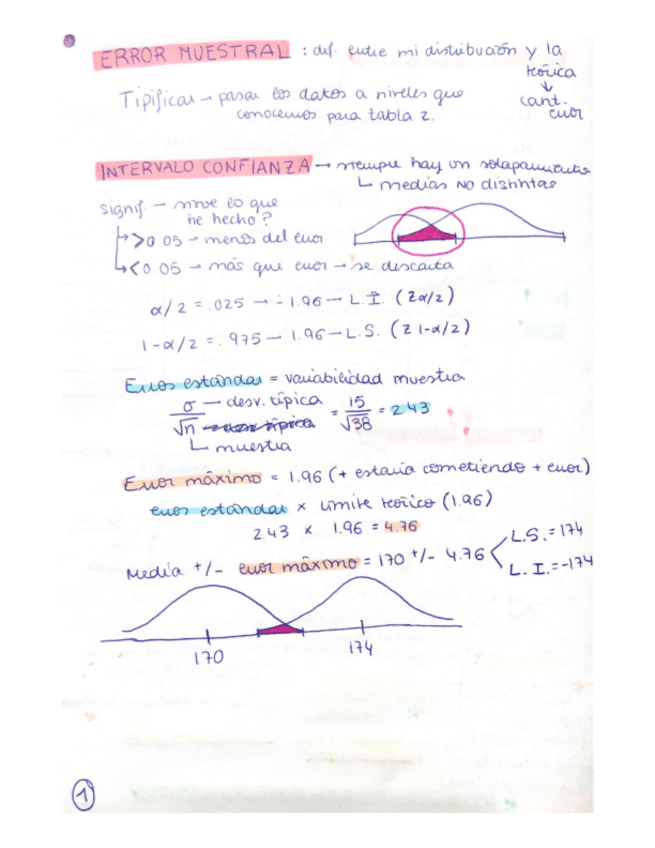 ERROR MUESTRAL : dif. entre mi distribución y la
teórica
↓
cant.
error
Tipificar – pasar los datos a niveles que
conocemos para tabla z.
INTERVALO CONFIANZA → siempre hay un solapamiento
↳ medias NO distintas
signif. – sirve lo que
he hecho?
↳ >0.05 – menos del error
↳ <0.05 – más que error → se descarta
α/2 = .025 → -1.96 – L.I. (Zα/2)
1-α/2 = .975 – 1.96 – L.S. (Z 1-α/2)
Error estándar = variabilidad muestra
σ – desv. típica = 15 = 2.43
√n √38
↳ muestra
Error máximo = 1.96 (+ estaría cometiendo + error)
error estándar × límite teórico (1.96)
2.43 × 1.96 = 4.76
Media +/- error máximo = 170 +/- 4.76
L.S. = 174
L.I. = -174
170
174
1